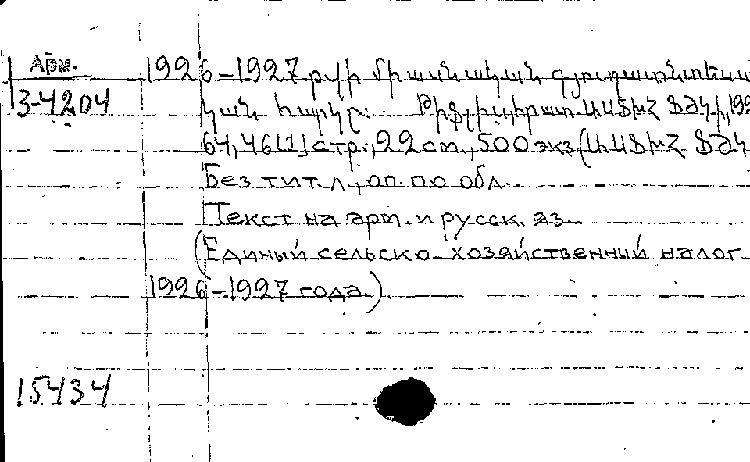 Арм. 1926-1927 թվի միասնական գյուղատնտեսա
3-4204 կան հարկը. Թիֆլիս, հրատ. ԱՍՖԽՀ ՖԺԿ-ի, 192
64, 46[1] стр., 22 cm, 500 экз. (ԱՍՖԽՀ ՖԺԿ
Без тит. л., оп. по обл.
Текст на арм. и русск. яз.
(Единый сельско-хозяйственный налог
1926-1927 года.)
15434